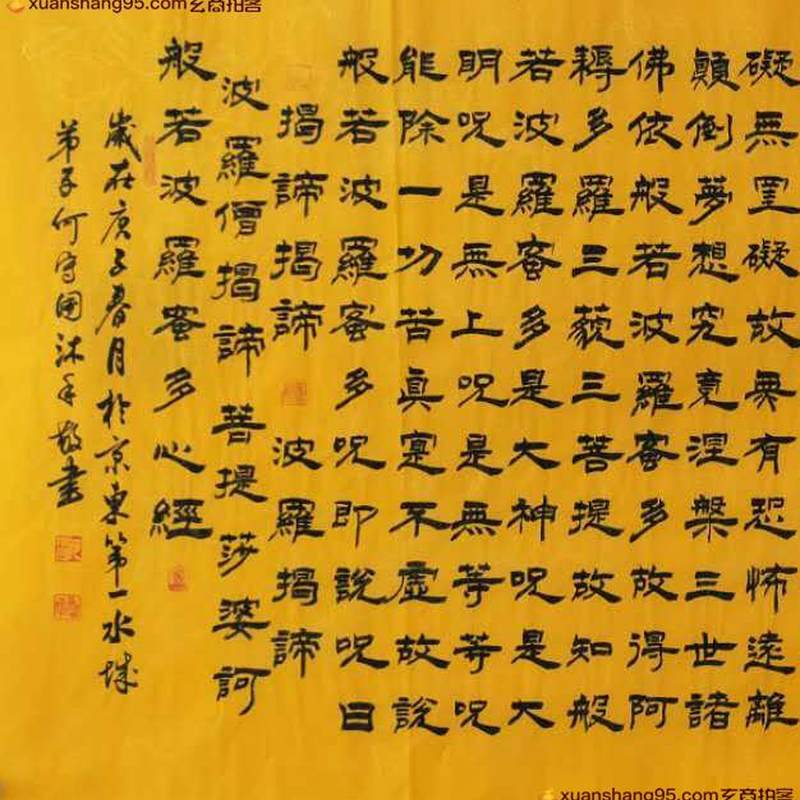 xuanshang95.com玄商拍客
礙無罣礙故無有恐怖遠離
顛倒夢想究竟涅槃三世諸
佛依般若波羅蜜多故得阿
耨多羅三藐三菩提故知般
若波羅蜜多是大神呪是大
明呪是無上呪是無等等呪
能除一切苦真寔不虛故說
般若波羅蜜多呪即說呪曰
揭諦揭諦 波羅揭諦
波羅僧揭諦菩提莎婆訶
般若波羅蜜多心經
歲在庚子春月於京東第一水城
弟子何守國沐手敬書
xuanshang95.com玄商拍客